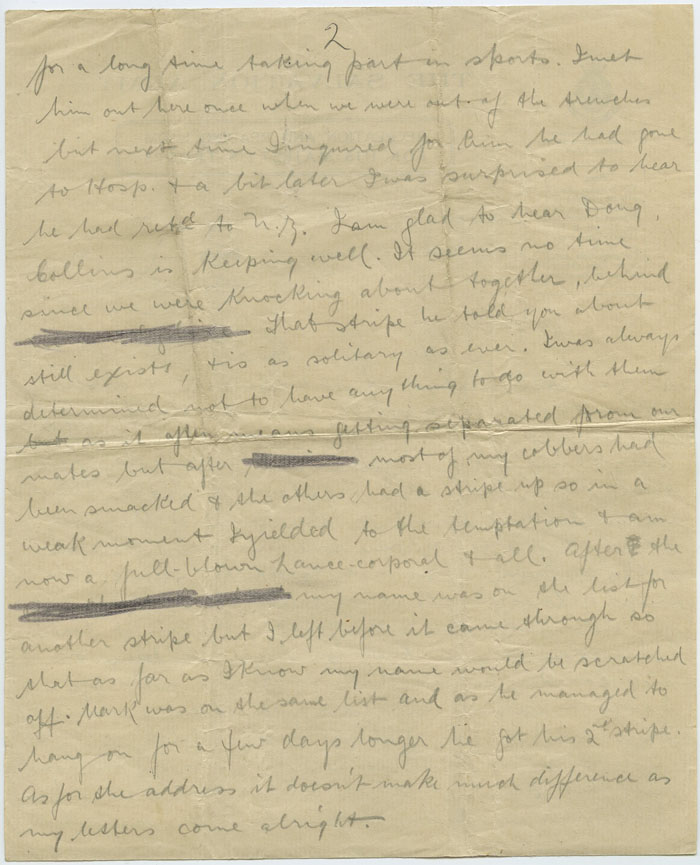 2
for a long time taking part in sports. I met
him out here once when we were out of the trenches
but next time I inquired for him he had gone
to Hosp. & a bit later I was surprised to hear
he had retd to N.Z. I am glad to hear Doug.
Collins is keeping well. It seems no time
since we were knocking about together, behind
That stripe he told you about
still exists, & is as solitary as ever. I was always
determined not to have anything to do with them
but as it often means getting separated from our
mates but after most of my cobbers had
been smacked & the others had a stripe up so in a
weak moment I yielded to the temptation & am
now a full-blown Lance-corporal & all. After the
my name was on the list for
another stripe but I left before it came through so
that as far as I know my name would be scratched
off. Mark was on the same list and as he managed to
hang on for a few days longer he got his 2nd stripe.
As for the address it doesn't make much difference as
my letters come alright.